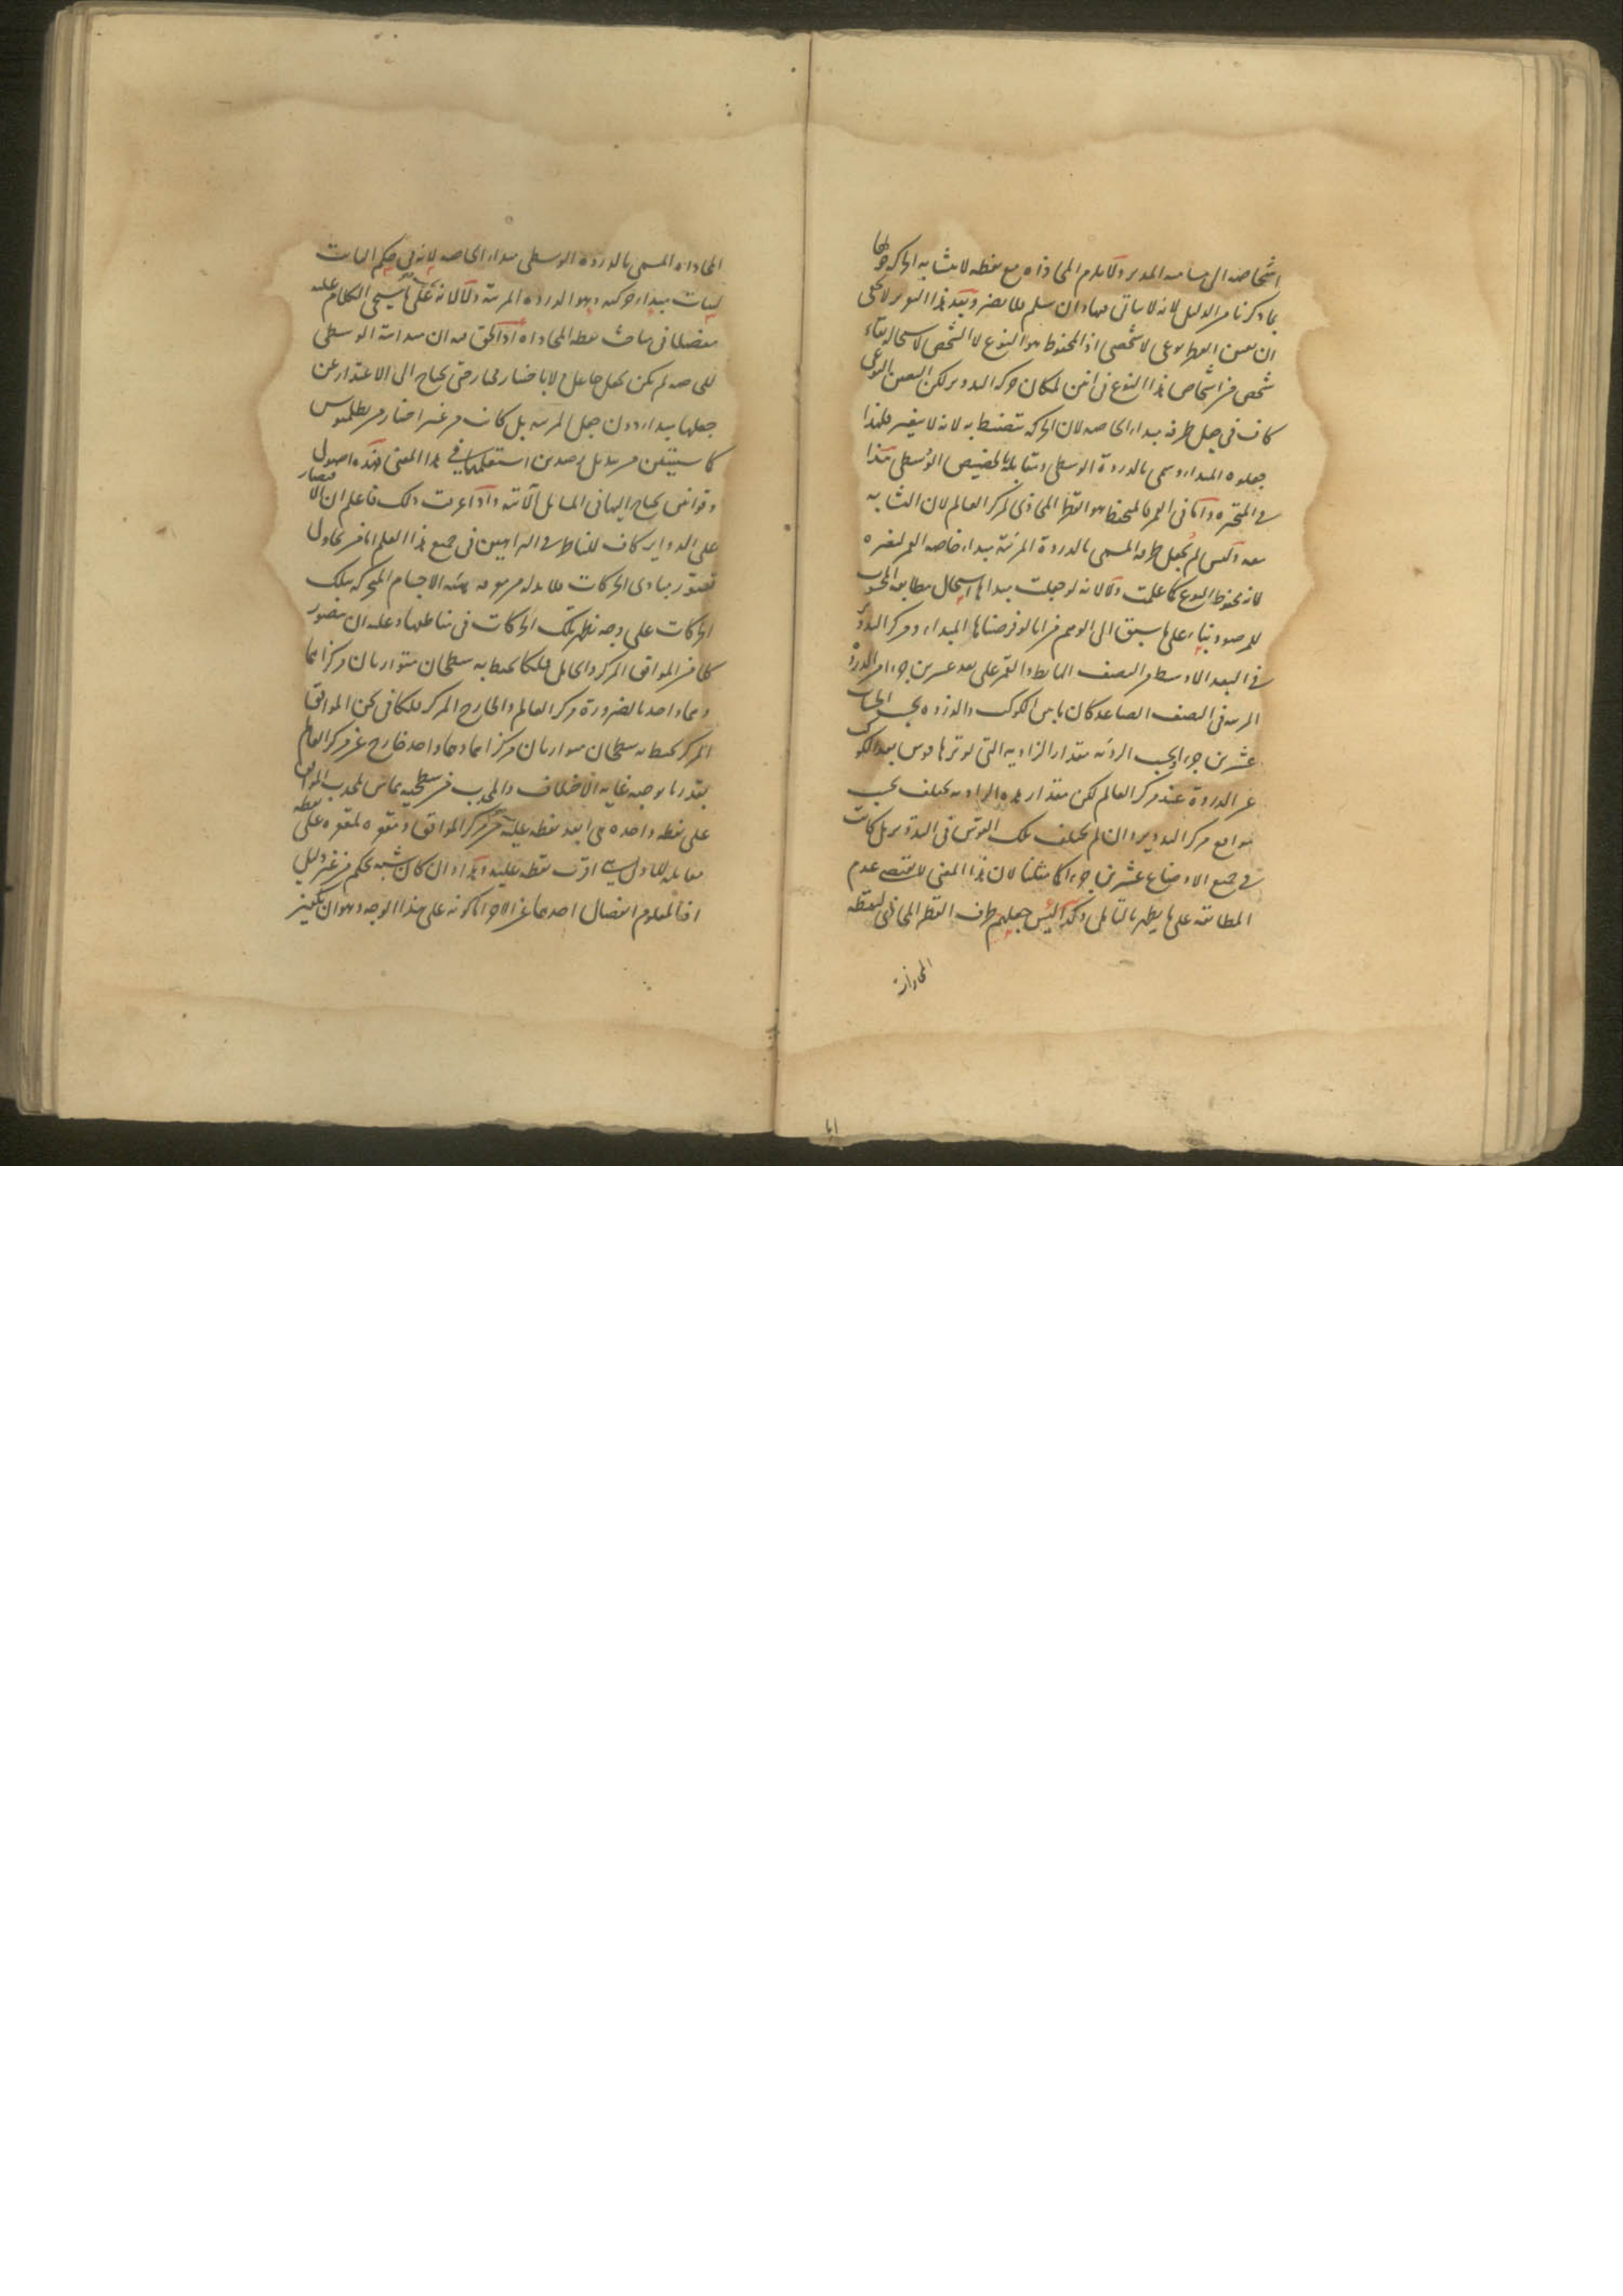 اشخاصه الى مسامته المدير والا يلزم المحاذاة مع نقطة لا يتشابه الحركة حولها
بما ذكرنا من الدليل لانه لا يتاتى فيها وان سلم فلا يضر وبعد هذا التقرير لا يخفى
ان تعين القطر نوعى لا شخصى اذ المحفوظ هو النوع لا الشخص لاستحالة بقاء
شخص من اشخاص هذا النوع فى آنين لمكان حركة التدوير لكن التعين النوعى
كاف فى جعل طرفه مبداء الخاصه لان الحركة تنضبط به لانه لا يتغير فلهذا
جعلوه المبدا وسمى بالذروة الوسطى ومقابلها بالحضيض الوسطى هذا
فى المتحيره واما فى القمر فالمحفوظ هو القطر المحاذى لمركز العالم لان التشابه
معه وليس لم يجعل طرفه المسمى بالذروة المرئية مبداء خاصة القمر لتغيره
لانه محفوظ النوع كما علمت ولا لانه لو جعلت مبداها استحال مطابقة المحسوب
للمرصود بناء على ما سبق الى الوهم من انا لو فرضناها المبداء ومركز التدوير
فى البعد الاوسط من النصف الهابط والقمر على بعد عشرين جزءا من الذروة
المرئية فى النصف الصاعد كان ما بين الكوكب والذروة بحسب الحساب
عشرين جزءا وبحسب الرؤية مقدار الزاويه التى يوترها قوس بعد الكوكب
عن الذروة عند مركز العالم لكن مقدار هذه الزاوية يختلف بحسب
مواضع مركز التدوير وان لم يختلف تلك القوس فى التدوير بل كانت
فى جميع الاوضاع عشرين جزءا كما مثلنا لان هذا المعنى لا يقتضى عدم
المطابقه على ما يظهر بالتامل وكذا ليس جعلهم طرف القطر المحاذى لنقطة
المحاذاة
المحاذاه المسمى بالذروه الوسطى مبداء الخاصه لانه فى حكم الثابت
لثبات مبداء حركته وهو الذروه المرئية ولا لانه على ما سيجى الكلام عليه
مفصلا فى مباحث نقطه المحاذاه اذ الحق فيه ان مبدائية الوسطى
للخاصه لم يكن بجعل جاعل لا باختيار مختار حتى يحتاج الى الاعتذار عن
جعلها مبداء دون جعل المرئيه بل كانت من غير اختيار من بطلميوس
كما سيتيقن من تبديل رصدين استعملهما فى هذا المعنى فهذه اصول
وقوانين يحتاج اليها فى المسائل الآتيه واذا عرفت ذلك فاعلم ان الاقتصار
على الدواير كاف للناظر فى البراهين فى جميع هذا العلم اما من يحاول
تصور مبادى الحركات فلا بد له من معرفة هيئة الاجسام المتحركه بتلك
الحركات على وجه تظهر تلك الحركات فى مناطقها وعليه ان يتصور
كلا من الموافق المركز والحامل فلكا يحيط به سطحان متوازيان مركزاهما
وهما واحد بالضرورة مركز العالم والخارج المركز فلكا فى ثخن الموافق
المركز يحيط به سطحان متوازيان مركزاهما وهما واحد خارج عن مركز العالم
بقدر ما يوجبه غاية الاختلاف والمحدب من سطحيه يماس لمحدب الموافق
على نقطه واحده هى ابعد نقطه عليه من مركز الموافق ومقعره لمقعره على نقطه
مقابله للاولى هى اقرب نقطه عليه وهذا وان كان شبه تحكم من غير دليل
اذ المعلوم انفصال احدهما عن الآخر اما كونه على هذا الوجه وهو ان يكون